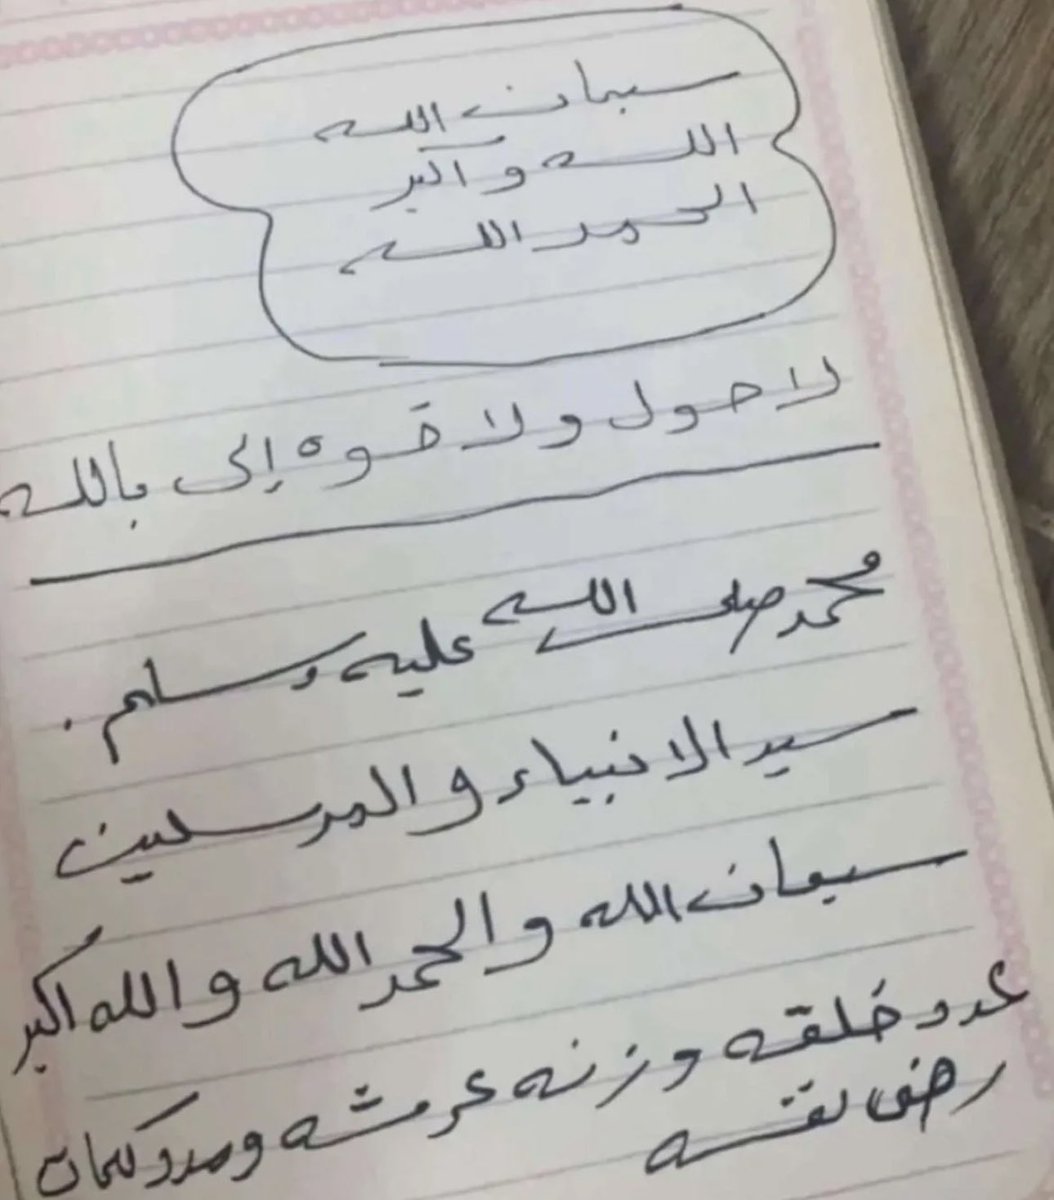 سبحان الله
الله و اكبر
الحمد الله
لا حول ولا قوه إلى بالله
محمد صلى الله عليه وسلم .
سيد الانبياء والمرسلين
سبحان الله والحمد الله والله اكبر
عدد خلقه وزنه عرشه ومدد كلمات
رضى نفسه